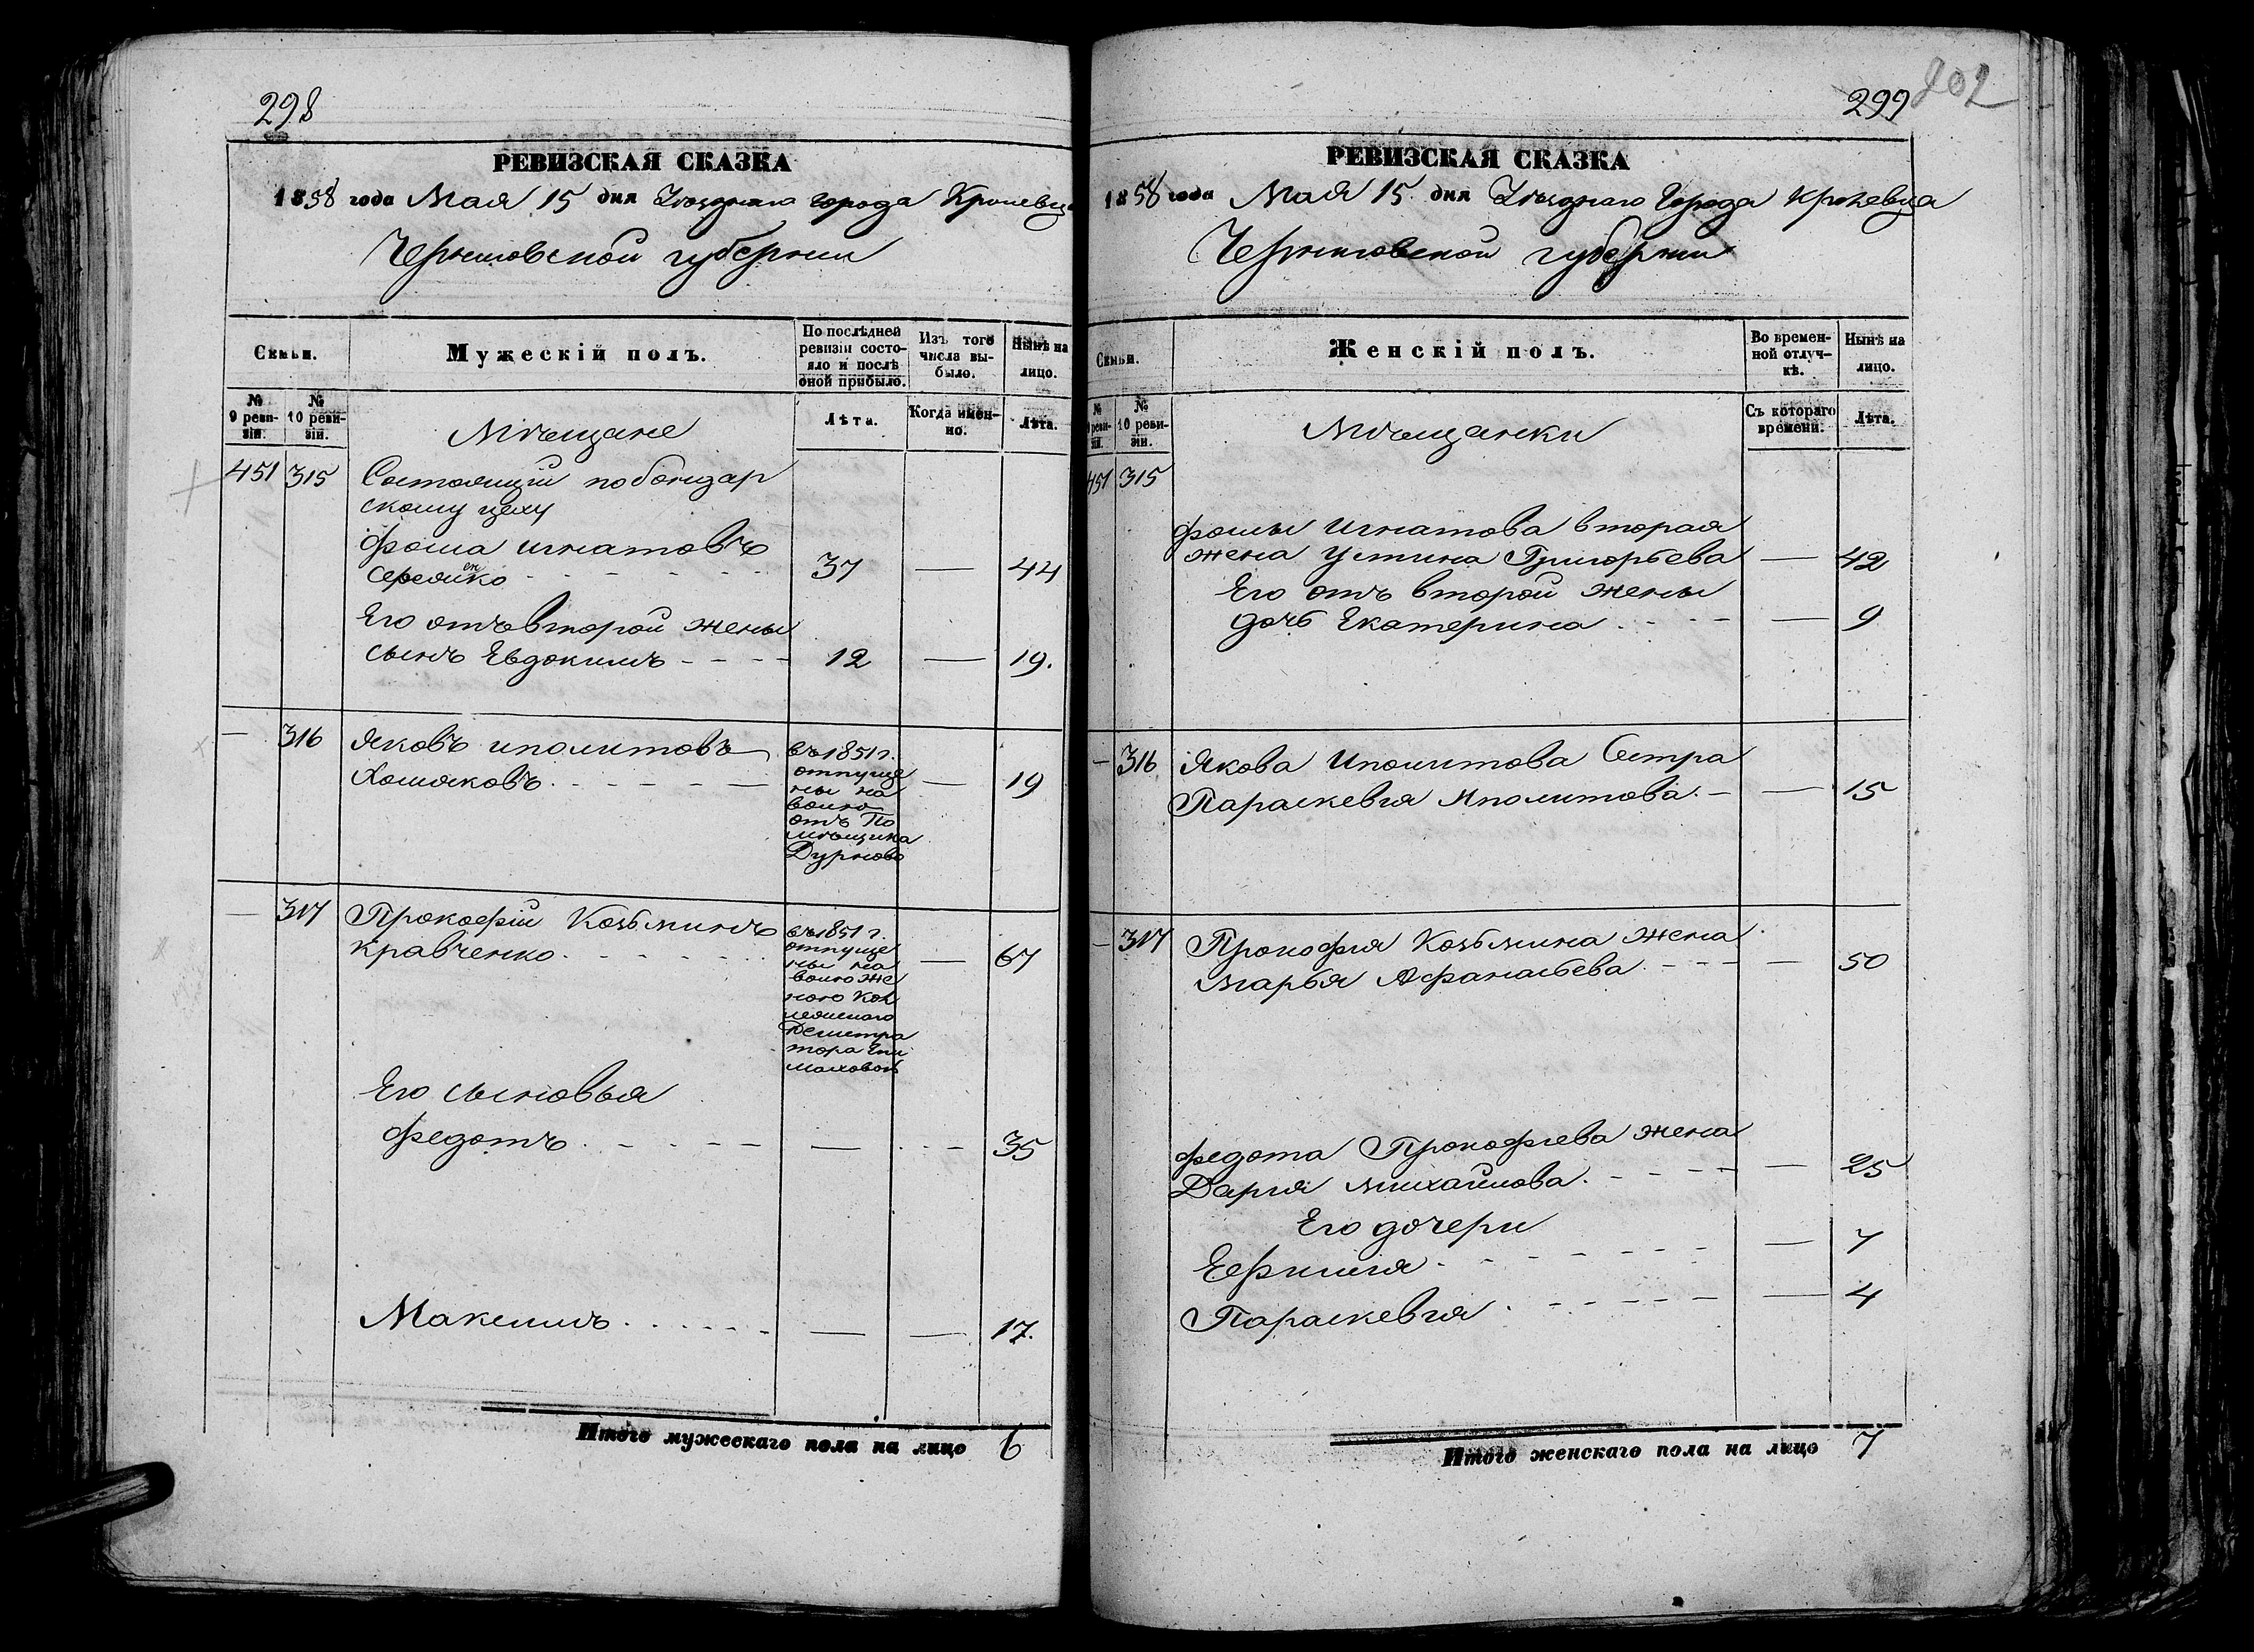 298
РЕВИЗСКАЯ СКАЗКА
1858 года Мая 15 дня Уѣзднаго города Кролевца
Черниговской губернии
Семьи.
Мужескій полъ.
По послѣдней ревизіи состояло и послѣ оной прибыло.
Изъ того числа выбыло.
Нынѣ на лицо.
№ 9 ревизіи.
№ 10 ревизіи.
Мѣщане
Лѣта.
Когда именно.
Лѣта.
451 315 Состоящій по бондар
скому цеху
Фома Игнатовъ
37 — 44
Его отъ второй жены
сынъ Евдокимъ - - - - 12 — 19.
— 316 Яковъ иполитовъ
Хомяковъ - - - - - — 19
въ 1851 г.
отпуще
ны на
волю
отъ По
мѣщика
Дурново
— 317 Прокофій Козьминъ
Кравченко - - - - - — 67
въ 1851 г.
отпуще
ны на
волю же
ною Кол
лежскаго
Регистра
тора
Его сыновья
Федотъ - - - - - — - - - 35
Максимъ . . . . . . — — 17.
Итого мужескаго пола на лицо 6
299 202
РЕВИЗСКАЯ СКАЗКА
1858 года Мая 15 дня Уѣзднаго Города Кролевца
Черниговской губернии
Семьи.
Женскій полъ.
Во временной отлучкѣ.
Нынѣ на лицо.
№ 9 ревизіи.
№ 10 ревизіи.
Мѣщанки
Съ котораго времени.
Лѣта.
451 315
Фомы Игнатова вторая
жена Устина Григорьева — 42
Его отъ второй жены
дочь Екатерина . - - - — 9
— 316 Якова Иполитова Сестра
Параскевия Иполитова. - — 15
— 317 Прокофия Козьмина жена
Марья Афанасьева . - - - — 50
Федота Прокофиева жена
Дария Михайлова. - - - - — 25
Его дочери
Ефимия - - - - - - — 7
Параскевия . - - - - - — 4
Итого женскаго пола на лицо 7